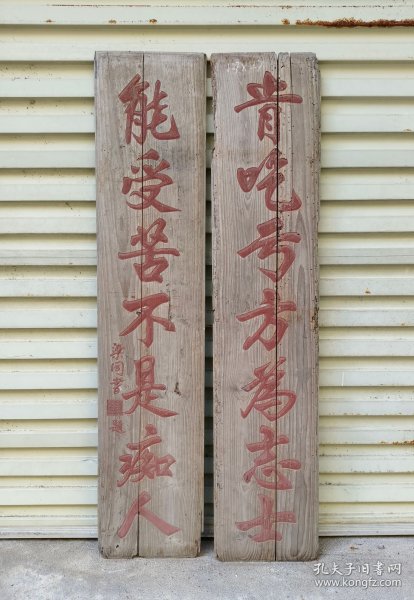 肯吃亏方为志士
能受苦不是痴人
梁同书
题
孔夫子旧书网
www.kongfz.com